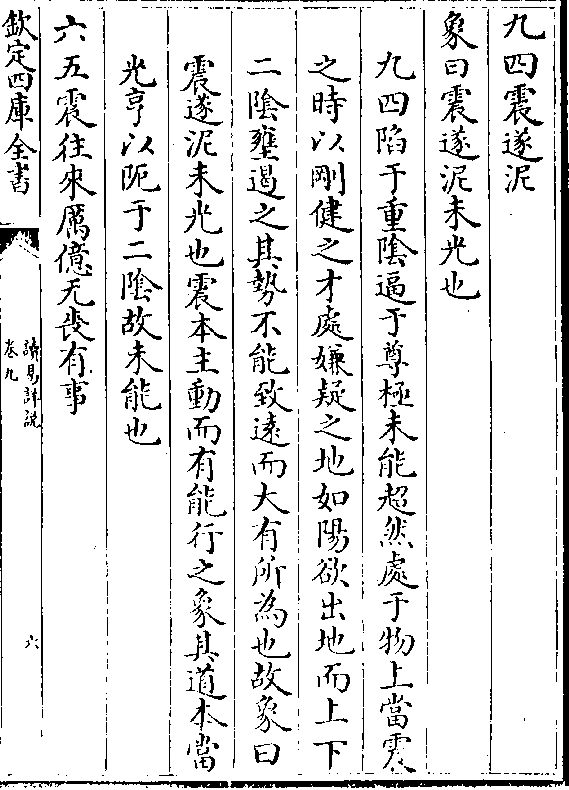 九四震遂泥
象曰震遂泥未光也
九四陷于重陰逼于尊極未能超然處于物上當震
之時以剛健之才處嫌疑之地如陽欲出地而上下
二陰壅遏之其勢不能致遠而大有所為也故象曰
震遂泥未光也震本主動而有能行之象其道本當
光亨以阨于二陰故未能也
六五震往來厲億无喪有事
欽定四庫全書
讀易詳説
卷九
六